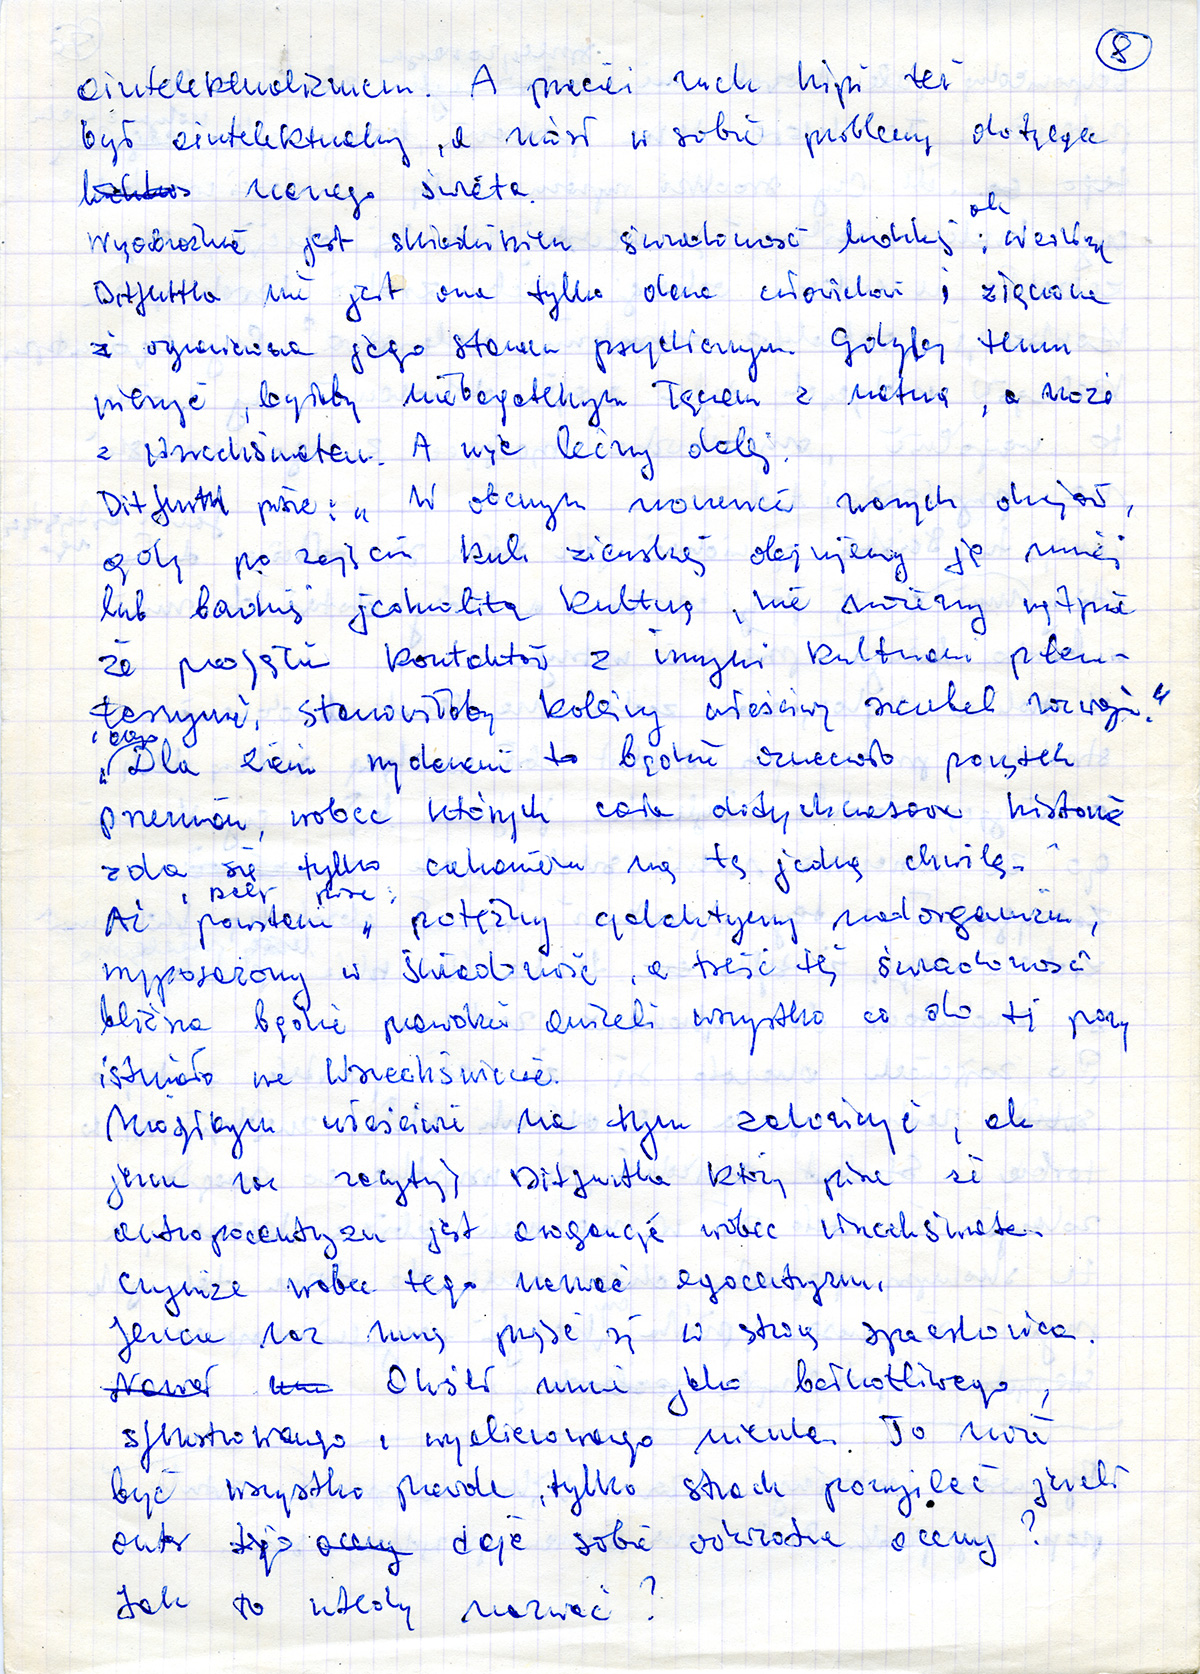 8
aintelektualizmem. A przecież ruch hipi też
był aintelektualny, a niósł w sobie problemy dotyczące
naszego świata.
Wyobraźnia jest składnikiem świadomości ludzkiej, ale według
Ditfurtha nie jest ona tylko dana człowiekowi i
i ograniczona jego stanem psychicznym. Gdyby temu
wierzyć, byłby niebagatelnym łączem z naturą, a może
z wszechświatem. A więc lećmy dalej.
Ditfurth pisze: „W obecnym momencie naszych dziejów,
gdy po zajęciu kuli ziemskiej obejmujemy ją mniej
lub bardziej jednolitą kulturą, nie możemy wątpić
że podjęcie kontaktów z innymi kulturami plane-
tarnymi, stanowiłoby kolejny właściwy szczebel rozwoju."
i dalej
„Dla Ziemi wydarzenie to będzie oznaczało początek
przemian, wobec których cała dotychczasowa historia
zda się tylko czekaniem na tę jedną chwilę."
i dalej pisze:
Aż powstanie „potężny galaktyczny nadorganizm,
wyposażony w świadomość, a treść tej świadomości
bliższa będzie prawdzie aniżeli wszystko co do tej pory
istniało we Wszechświecie.
Mógłbym właściwie na tym zakończyć, ale
jeszcze raz zacytuję Ditfurtha który pisze że
antropocentryzm jest arogancją wobec wszechświata.
Czymże wobec tego nazwać egocentryzm.
Jeszcze raz muszę przyjść w stronę
Nawet Określił mnie jako bełkotliwego,
sfrustrowanego i wyalienowanego To może
być wszystko prawda, tylko strach pomyśleć jeżeli
autor tej oceny daje sobie odwrotne oceny?
Jak to wtedy nazwać?